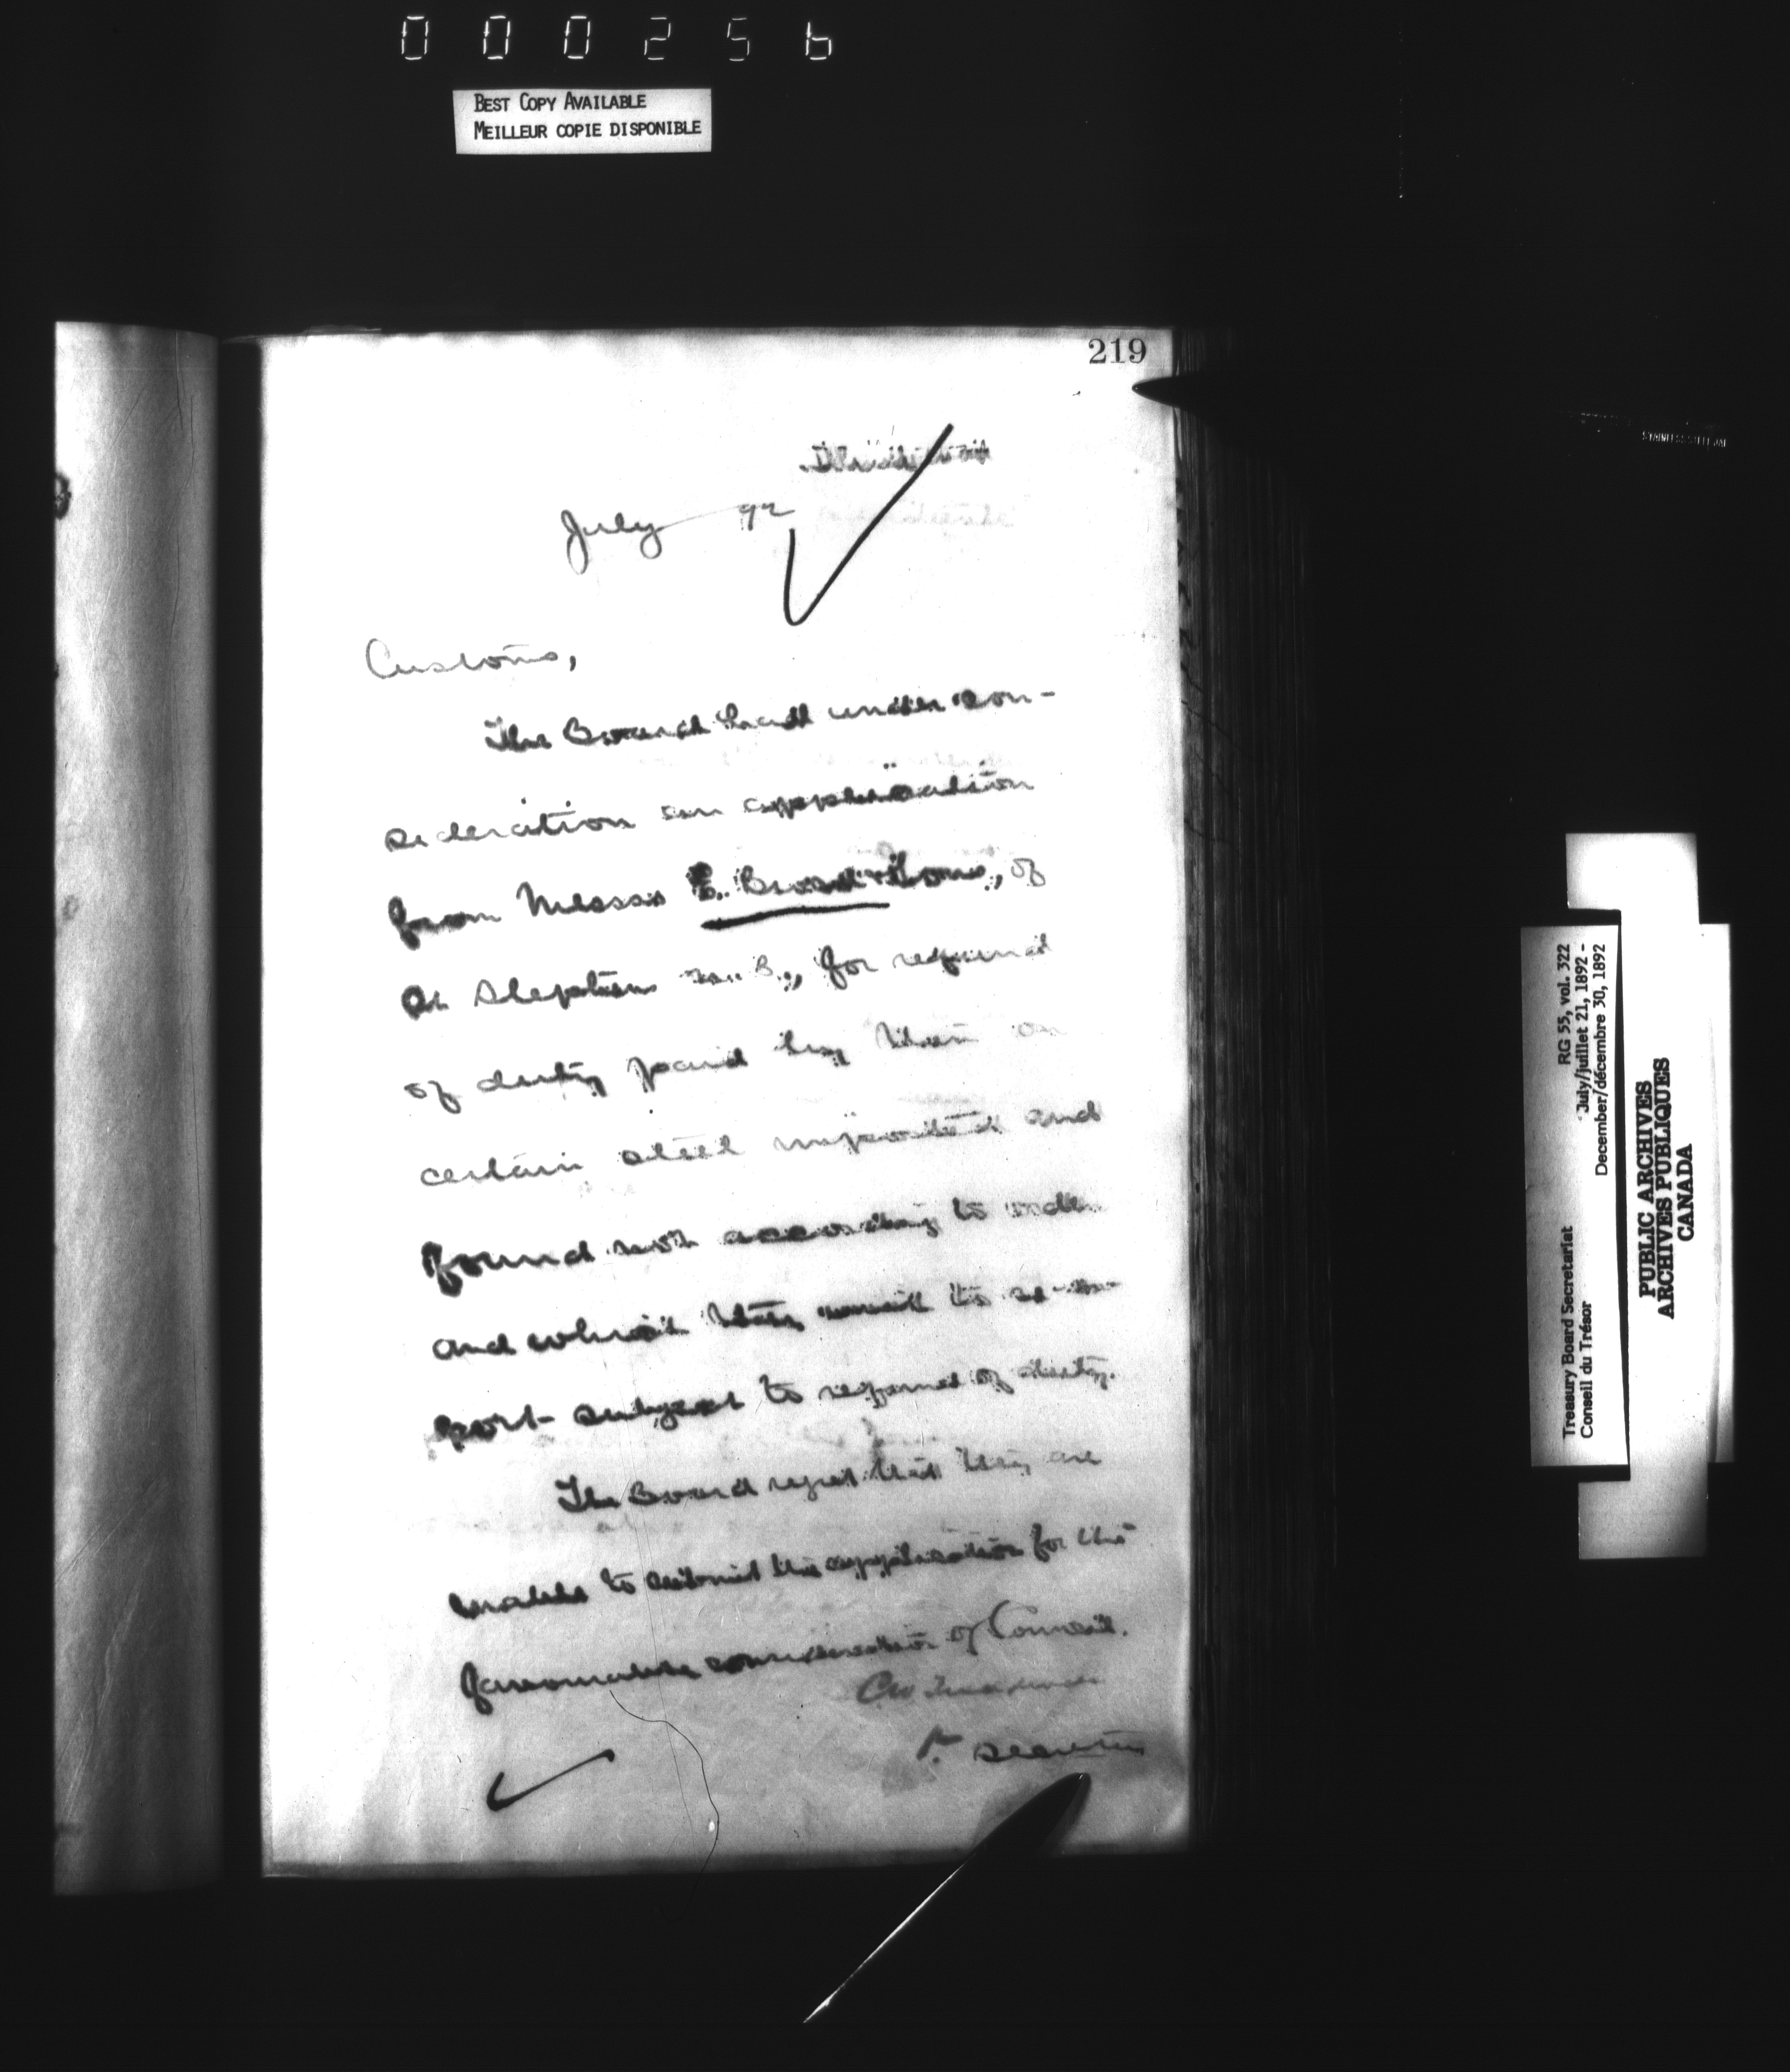 000256
BEST COPY AVAILABLE
MEILLEUR COPIE DISPONIBLE
219
July 92
Customs,
The Board had under con-
sideration an application
from Messrs E. Broad & Sons, of
St Stephen N.B., for refund
of duty paid by them on
certain steel imported and
found not according to order
and which they want to ex-
port subject to refund of duty.
The Board regret that they are
unable to submit the application for the
favourable consideration of Council.
Secretary
RG 55, vol. 322
July/juillet 21, 1892 -
December/décembre 30, 1892
Treasury Board Secretariat
Conseil du Trésor
PUBLIC ARCHIVES
ARCHIVES PUBLIQUES
CANADA